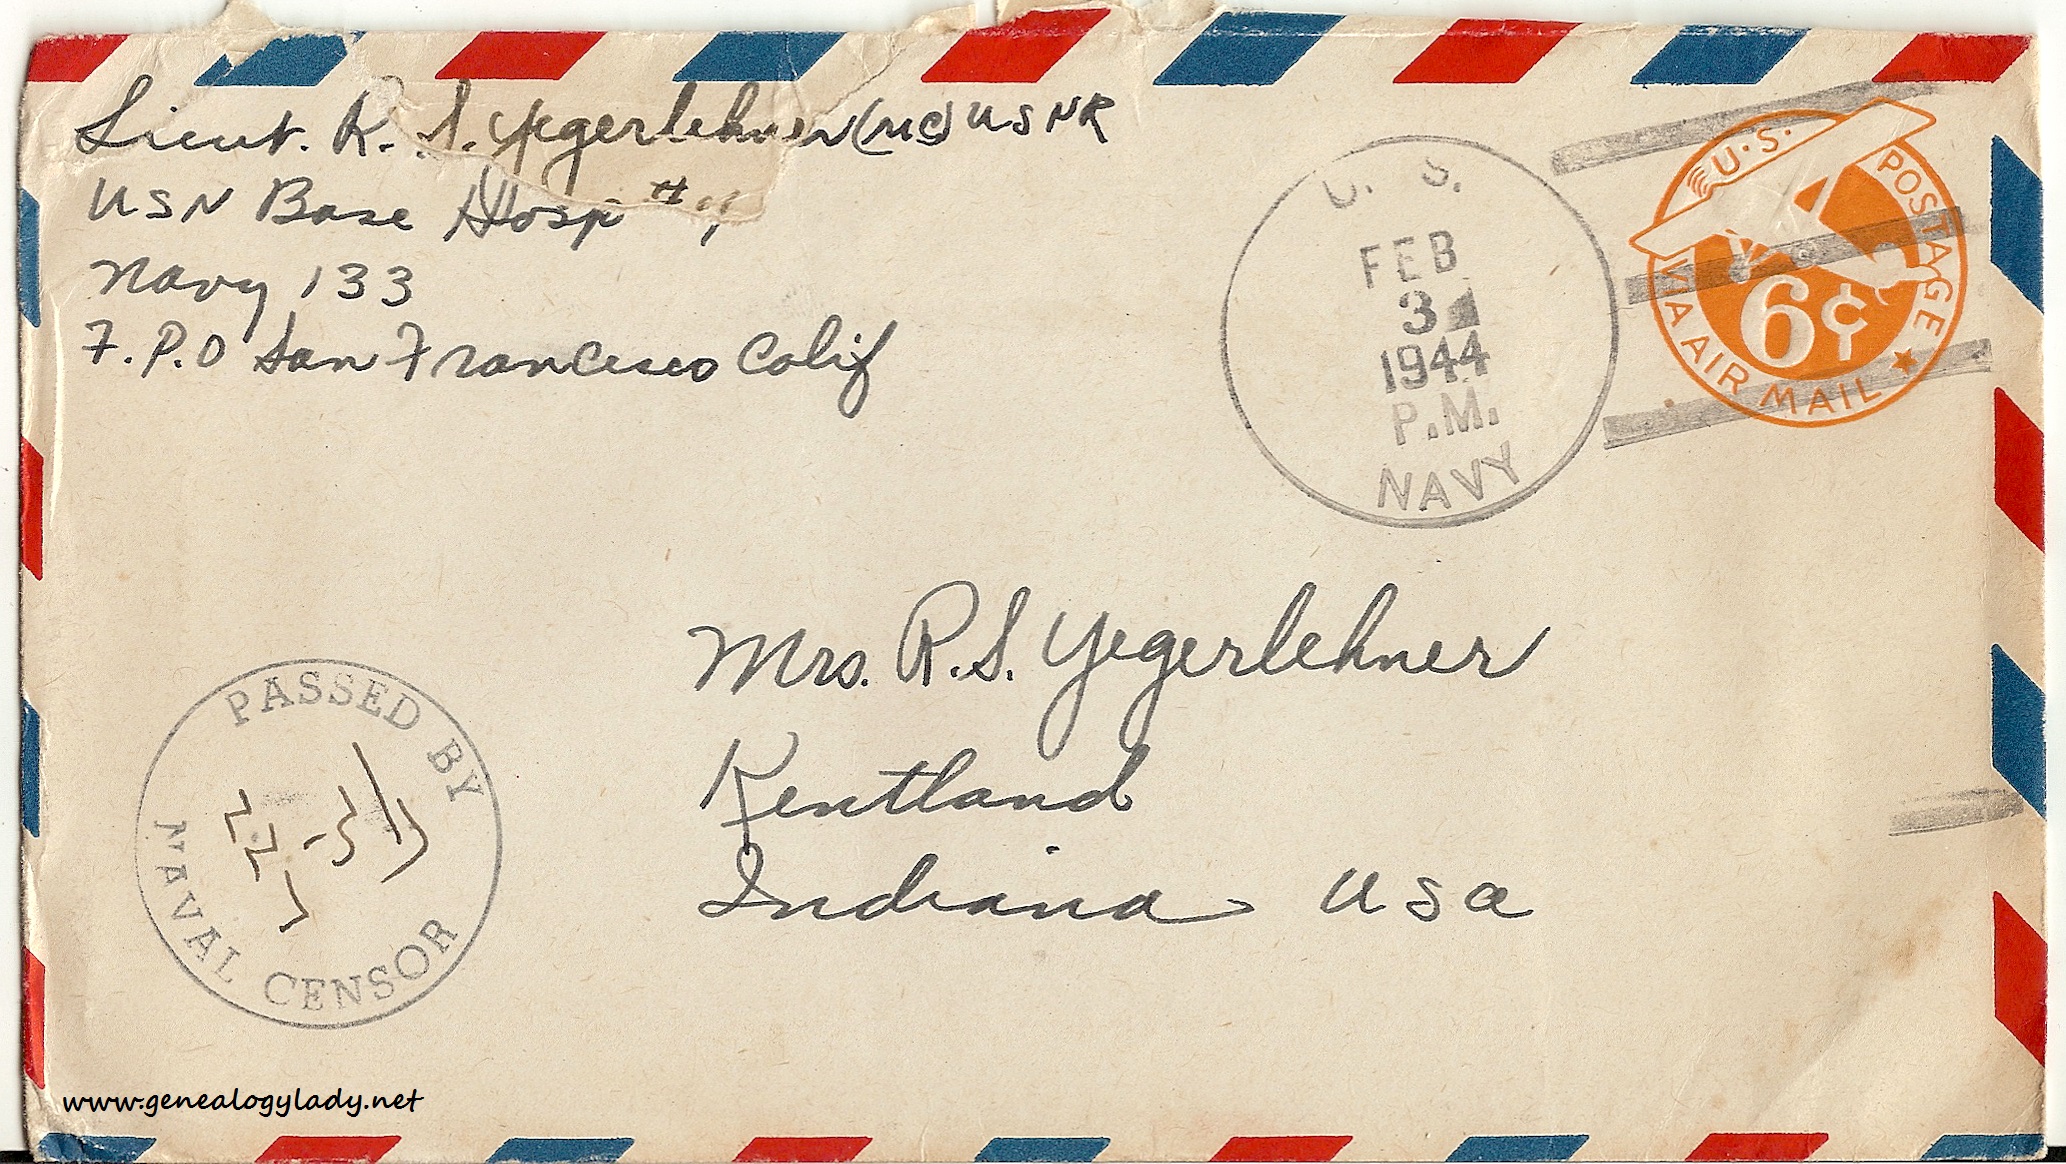 Lieut. R. S. Yegerlehner (MC) USNR
USN Base Hosp #
Navy 133
F.P.O San Francisco Calif
U. S.
FEB
3
1944
P.M.
NAVY
U.S. POSTAGE
6¢
VIA AIR MAIL
Mrs. R. S. Yegerlehner
Kentland
Indiana USA
PASSED BY
NAVAL CENSOR
www.genealogylady.net